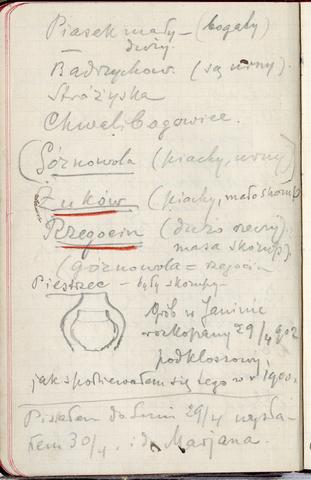 Piasek mały — (bogaty)
— duży.
Badrzychow. (są urny).
Stróżyska
Chwalibogowice.
(Górnowola (piachy, urny)
Żuków (piachy, mało skorup)
Rzegocin (dużo
masa skorup).
(górnowola =
Piestrzec — były skorupy —
Grób w Janinie
rozkopany 29/4 902
podkloszowy,
jak spodziewałem się tego w r 1900.
Pisałem do 29/4 wysła-
łem 30/4. i do Marjana.